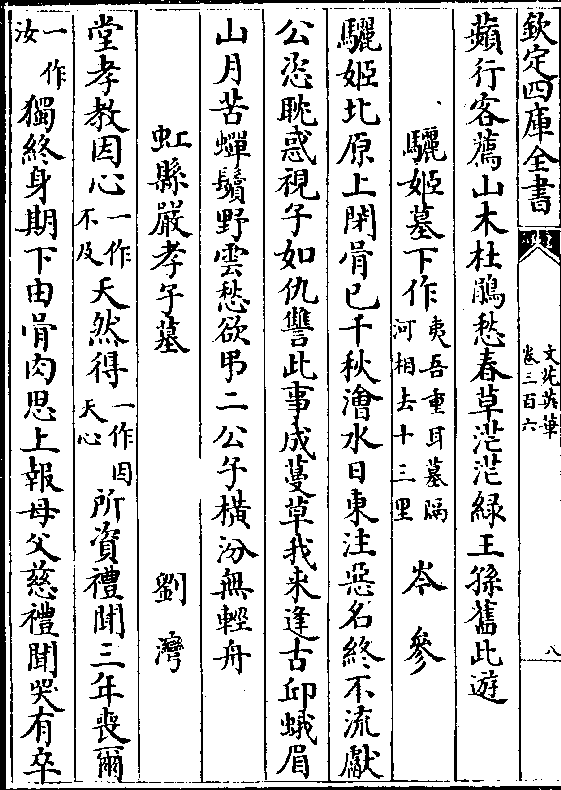 欽定四庫全書
文苑英華
卷三百六
八
蘋行客薦山木杜鵑愁春草茫茫緑王孫舊此遊
驪姬墓下作夷吾重耳墓隔河相去十三里 岑參
驪姬北原上閉骨已千秋澮水日東注惡名終不流獻
公恣耽惑視子如仇讐此事成蔓草我来逢古邱蛾眉
山月苦蟬鬢野雲愁欲弔二公子横汾無輕舟
虹縣嚴孝子墓 劉灣
堂孝教因心一作不及天然得一作因天心所資禮聞三年喪爾
一作汝獨終身期下由骨肉恩上報母父慈禮聞哭有卒